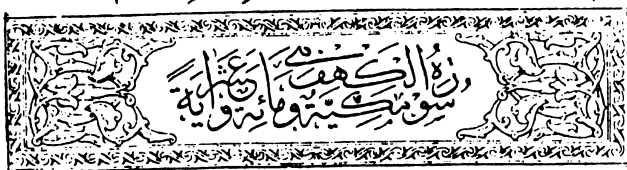 سورة الكهف مكية ومائة وعشر آية